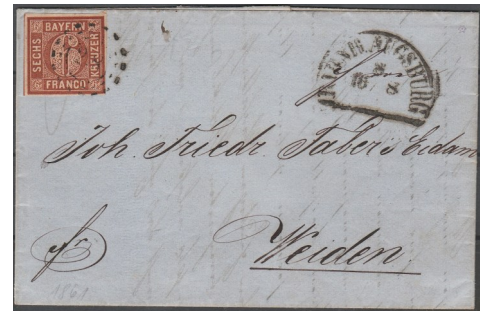 BAYERN
SECHS
6
KREUZER
FRANCO
AUGSBURG
Joh. Friedr. Faber's Eidam
Weiden
1861